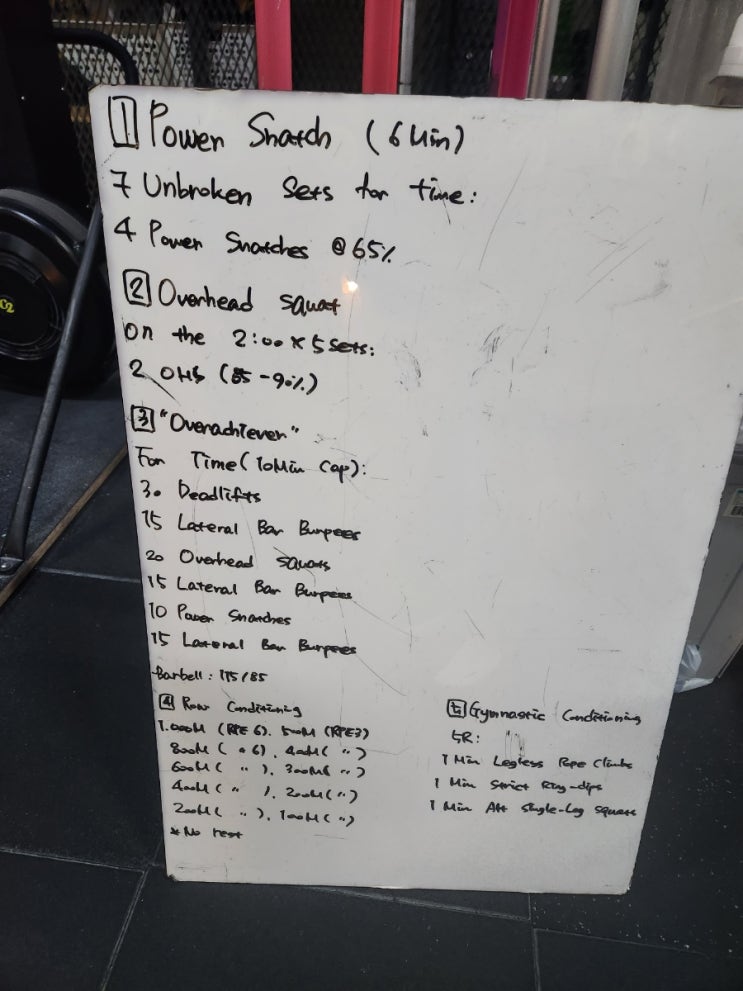 1 Power Snatch (6 Min)
7 Unbroken Sets for time:
4 Power Snatches @ 65%
2 Overhead squat
on the 2:00 x 5 Sets:
2 OHS (85-90%)
3 "Overachiever"
For Time (10 Min Cap):
30 Deadlifts
15 Lateral Bar Burpees
20 Overhead squats
15 Lateral Bar Burpees
10 Power Snatches
15 Lateral Bar Burpees
Barbell: 115/85
4 Row Conditioning
1.000M (RPE 6), 500M (RPE3)
800M ( " 6), 400M ( " )
600M ( " ), 300M ( " )
400M ( " ), 200M ( " )
200M ( " ), 100M ( " )
* No rest
5 Gymnastic Conditioning
5R:
1 Min Legless Rope Climbs
1 Min Strict Ring-dips
1 Min Alt Single-Leg Squats
C2